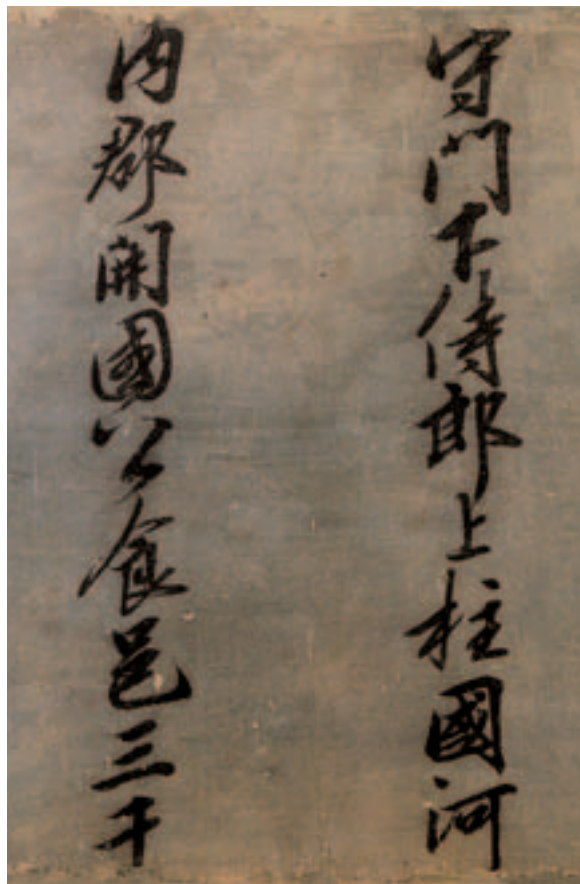 守門下侍郎上柱國河
内郡開國公食邑三千